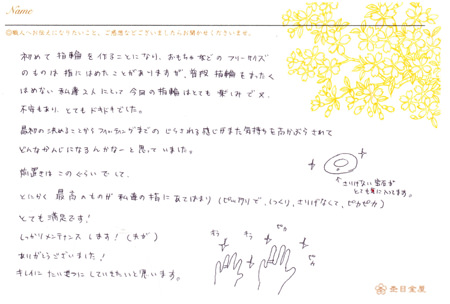 Name
◎職人へお伝えになりたいこと、ご感想などございましたらお聞かせくださいませ。
初めて指輪を作ることになり、おもちゃなどのフリーサイズ
のものは指にはめたことがありますが、普段指輪をまったく
はめない私達2人にとって今回の指輪はとても楽しみで
不安もあり、とてもドキドキでした。
最初の決めることからフィッティングまでのじらされる感じがまた気持ちを高ぶらされて
どんなかんじになるんかなーと思っていました。
前置きはこのくらいでして、
とにかく最高のものが私達の指にあてはまり(ピッタリで、しっくり、さりげなくて、ピカピカ)
とても満足です!
しっかりメンテナンスします!(夫が)
ありがとうございました!
キレイにたいせつにしていきたいと思います。
さりげない宝石が
とても気に入ってます。
キラ
キラ
ピカ
ピカ
杢目金屋